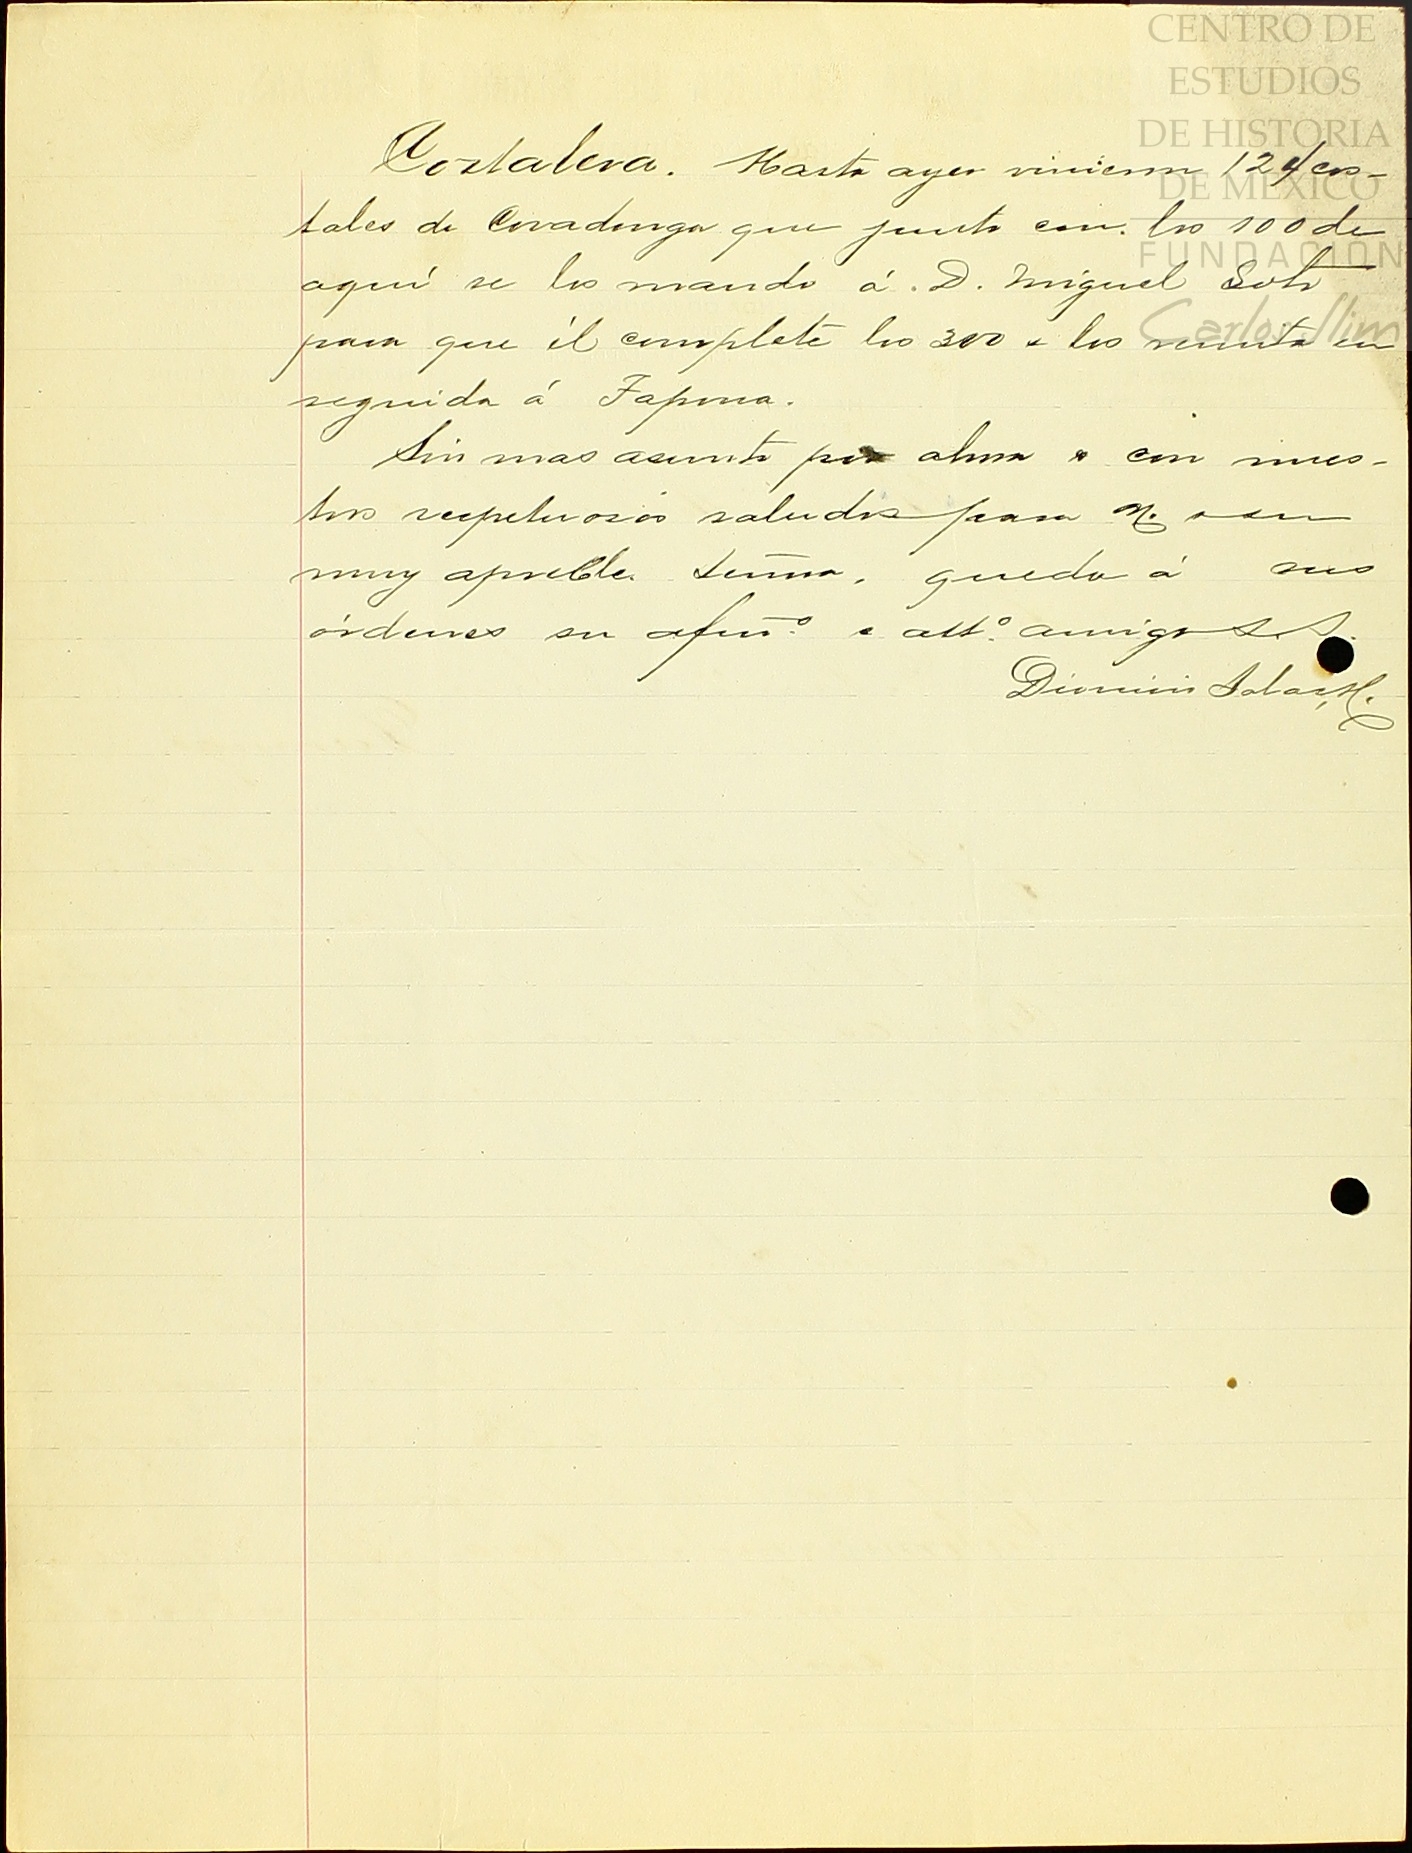 CENTRO DE
ESTUDIOS
DE HISTORIA
DE MÉXICO
FUNDACIÓN
Carlos Slim
Costalera. Hasta ayer vinieron 124 cos-
tales de Covadonga que junto con los 100 de
aquí se los mando á D. Miguel Soto
para que él complete los 300 y los remita en
seguida á
Sin mas asunto por ahora y con nues-
tros respetuosos saludos para U. y su
muy apreble. Señora, queda á sus
órdenes su afmo. y atto. amigo y S. S.
Dionisio